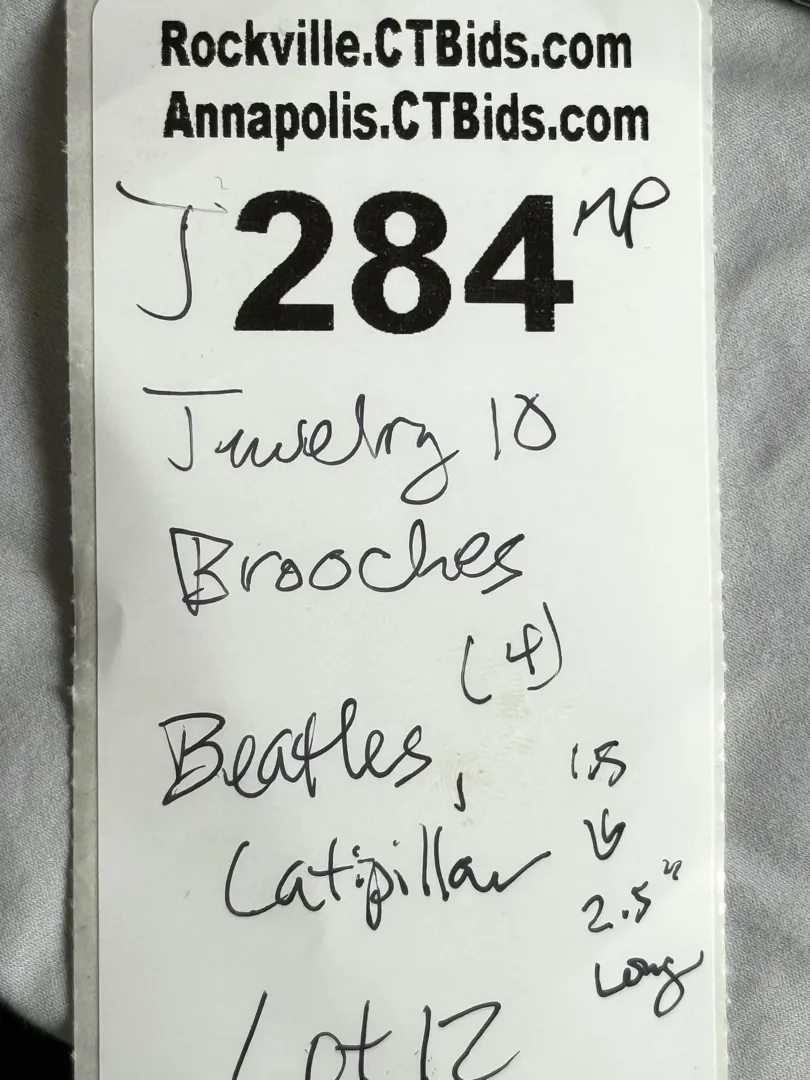 Rockville.CTBids.com
Annapolis.CTBids.com
J 284 MP
Jewelry 10
Brooches
(4)
Beatles,
Catipillar
1.5
↓
2.5"
Long
Lot 12